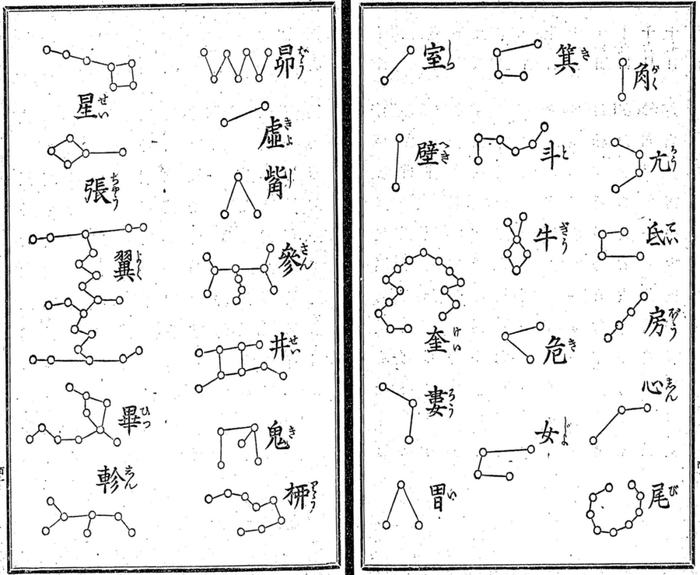 角 かく
亢 かう
氐 てい
房 ばう
心 志ん
尾 び
箕 き
斗 と
牛 ぎう
危 き
女 ぢよ
室 しつ
壁 へき
奎 けい
婁 ろう
胃 い
昴 ばう
虚 きよ
觜 し
參 さん
井 せい
鬼 き
栁 りう
星 せい
張 ちやう
翼 よく
畢 ひつ
軫 志ん